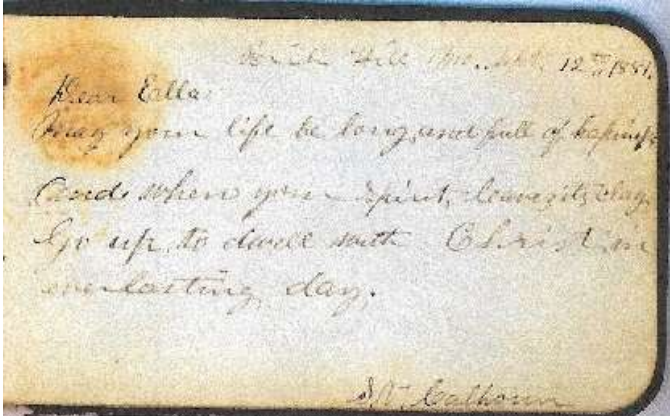 Hill Mo. Sept. 12th 1881.
Dear Ella
May your life be long, and full of hapiness
And when your spirit, leaves its clay,
Go up to dwell with Christ in
everlasting day.
Calhoun